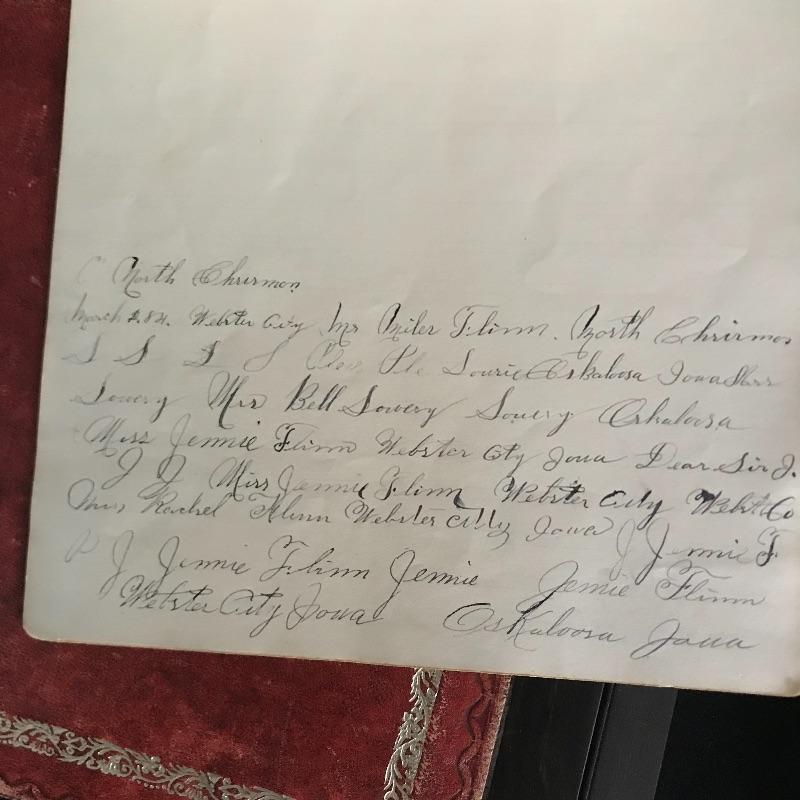 C North Chrirmon
March 2.84. Webster City Mr Miler Flinn. North Chrirmon
S S S S Pl Lourie Oskaloosa Iowa
Lowery Mrs Bell Lowery Sowery Oskaloosa
Miss Jennie Flinn Webster City Iowa Dear Sir J.
J J Miss Jennie Flinn Webster City Webst Co
Miss Rachel Flinn Webster City Iowa J Jennie F
J Jennie Flinn Jennie Jennie Flinn
Webster City Iowa Oskaloosa Iowa